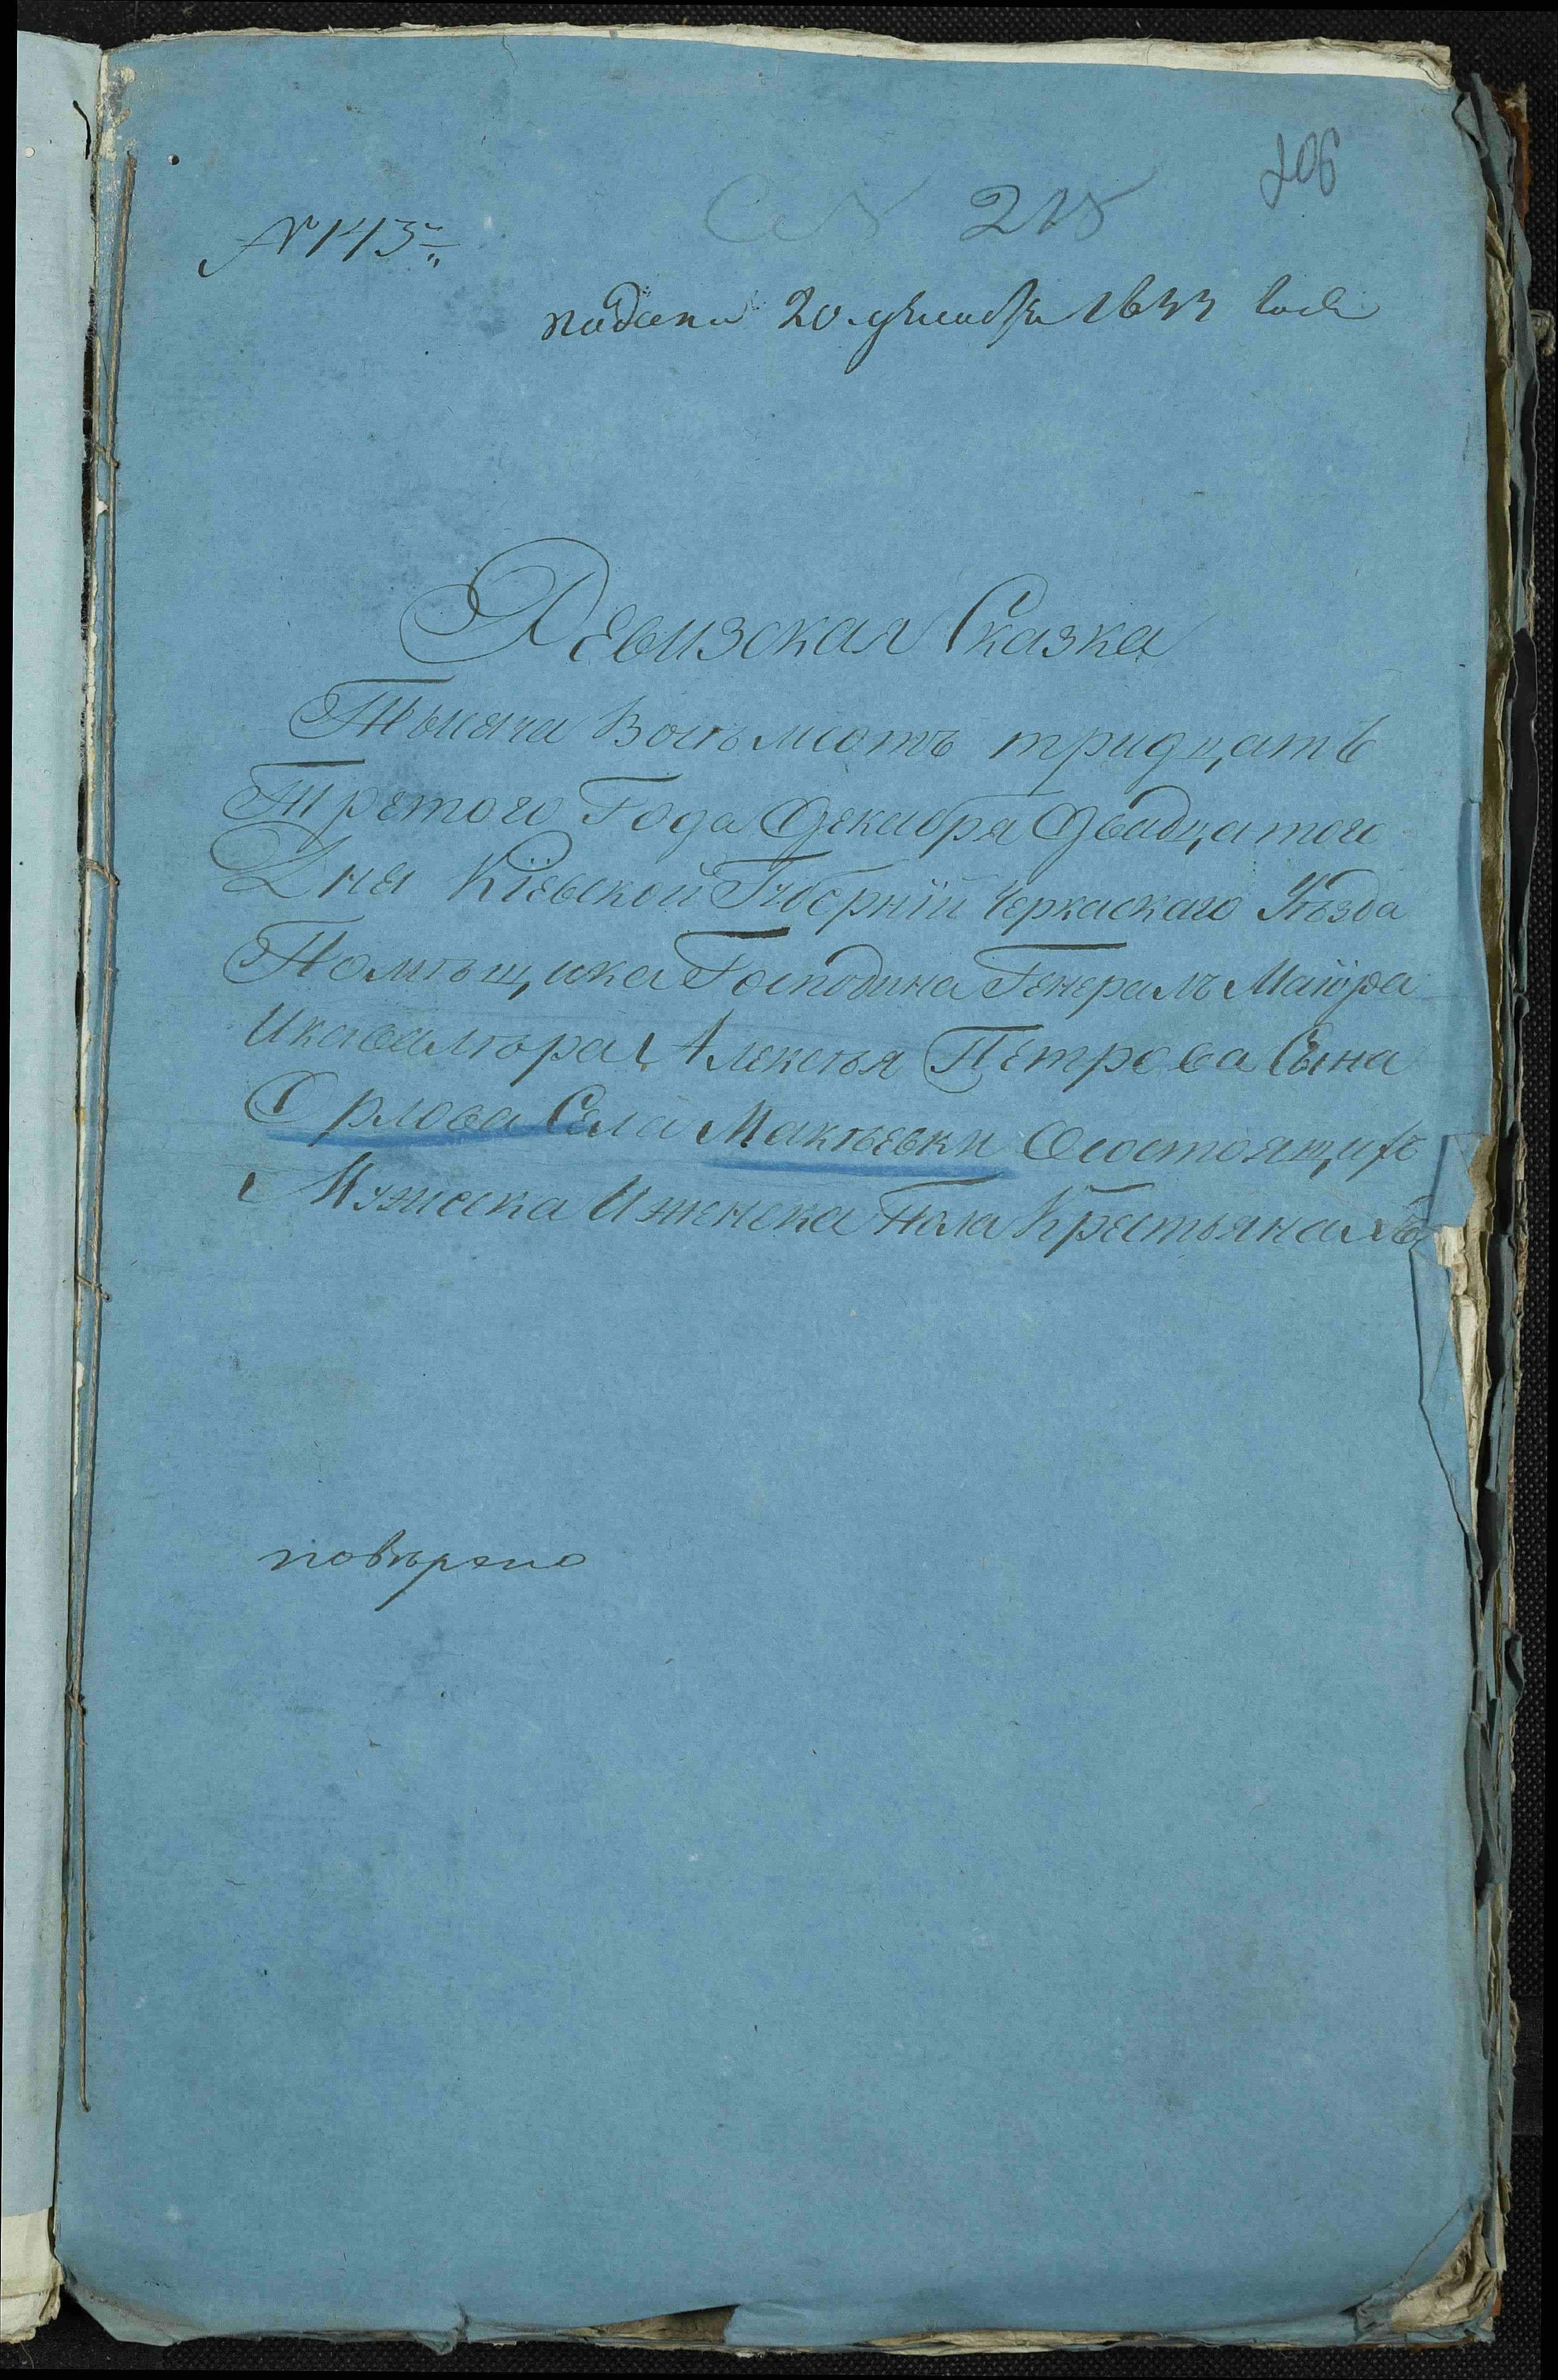 206
218
№ 143
подана 20 декабря 1833 года
Ревизская Сказка
Тысяча Восъмсотъ тридцать
Третого Года Декабря Двадцатого
Дня Кіевской Губерніи Черкаскаго Уѣзда
Помѣщика Господина Генералъ Маіора
Икавалѣра Алексѣя Петрова Сына
Орлова Села Макѣевки Осостоящихъ
Мужеска Иженска Пола Крестьянахъ
повѣрено